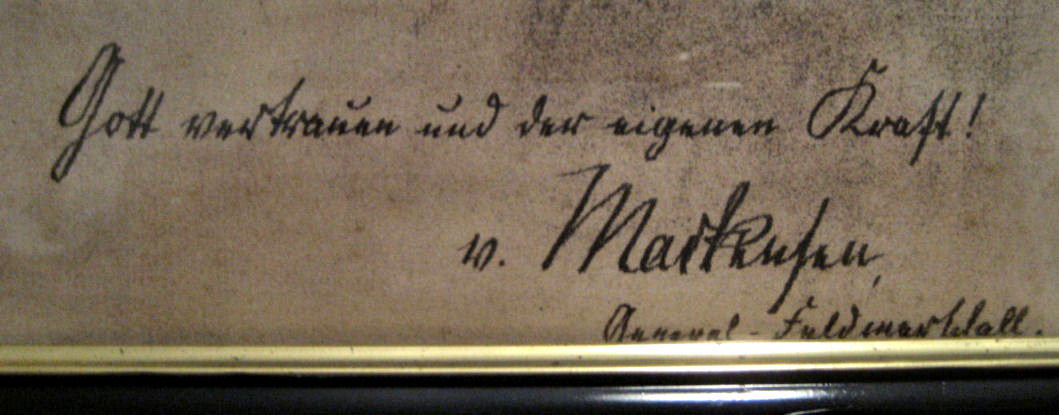 Gott vertrauen und der eigenen Kraft!
v. Mackensen,
General-Feldmarschall.